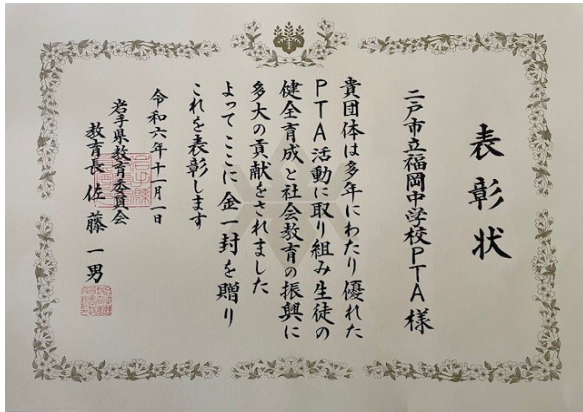 表彰状
二戸市立福岡中学校PTA様
貴団体は多年にわたり優れた
PTA活動に取り組み生徒の
健全育成と社会教育の振興に
多大の貢献をされました
よってここに金一封を贈り
これを表彰します
令和六年十一月一日
岩手県教育委員会
教育長 佐藤一男